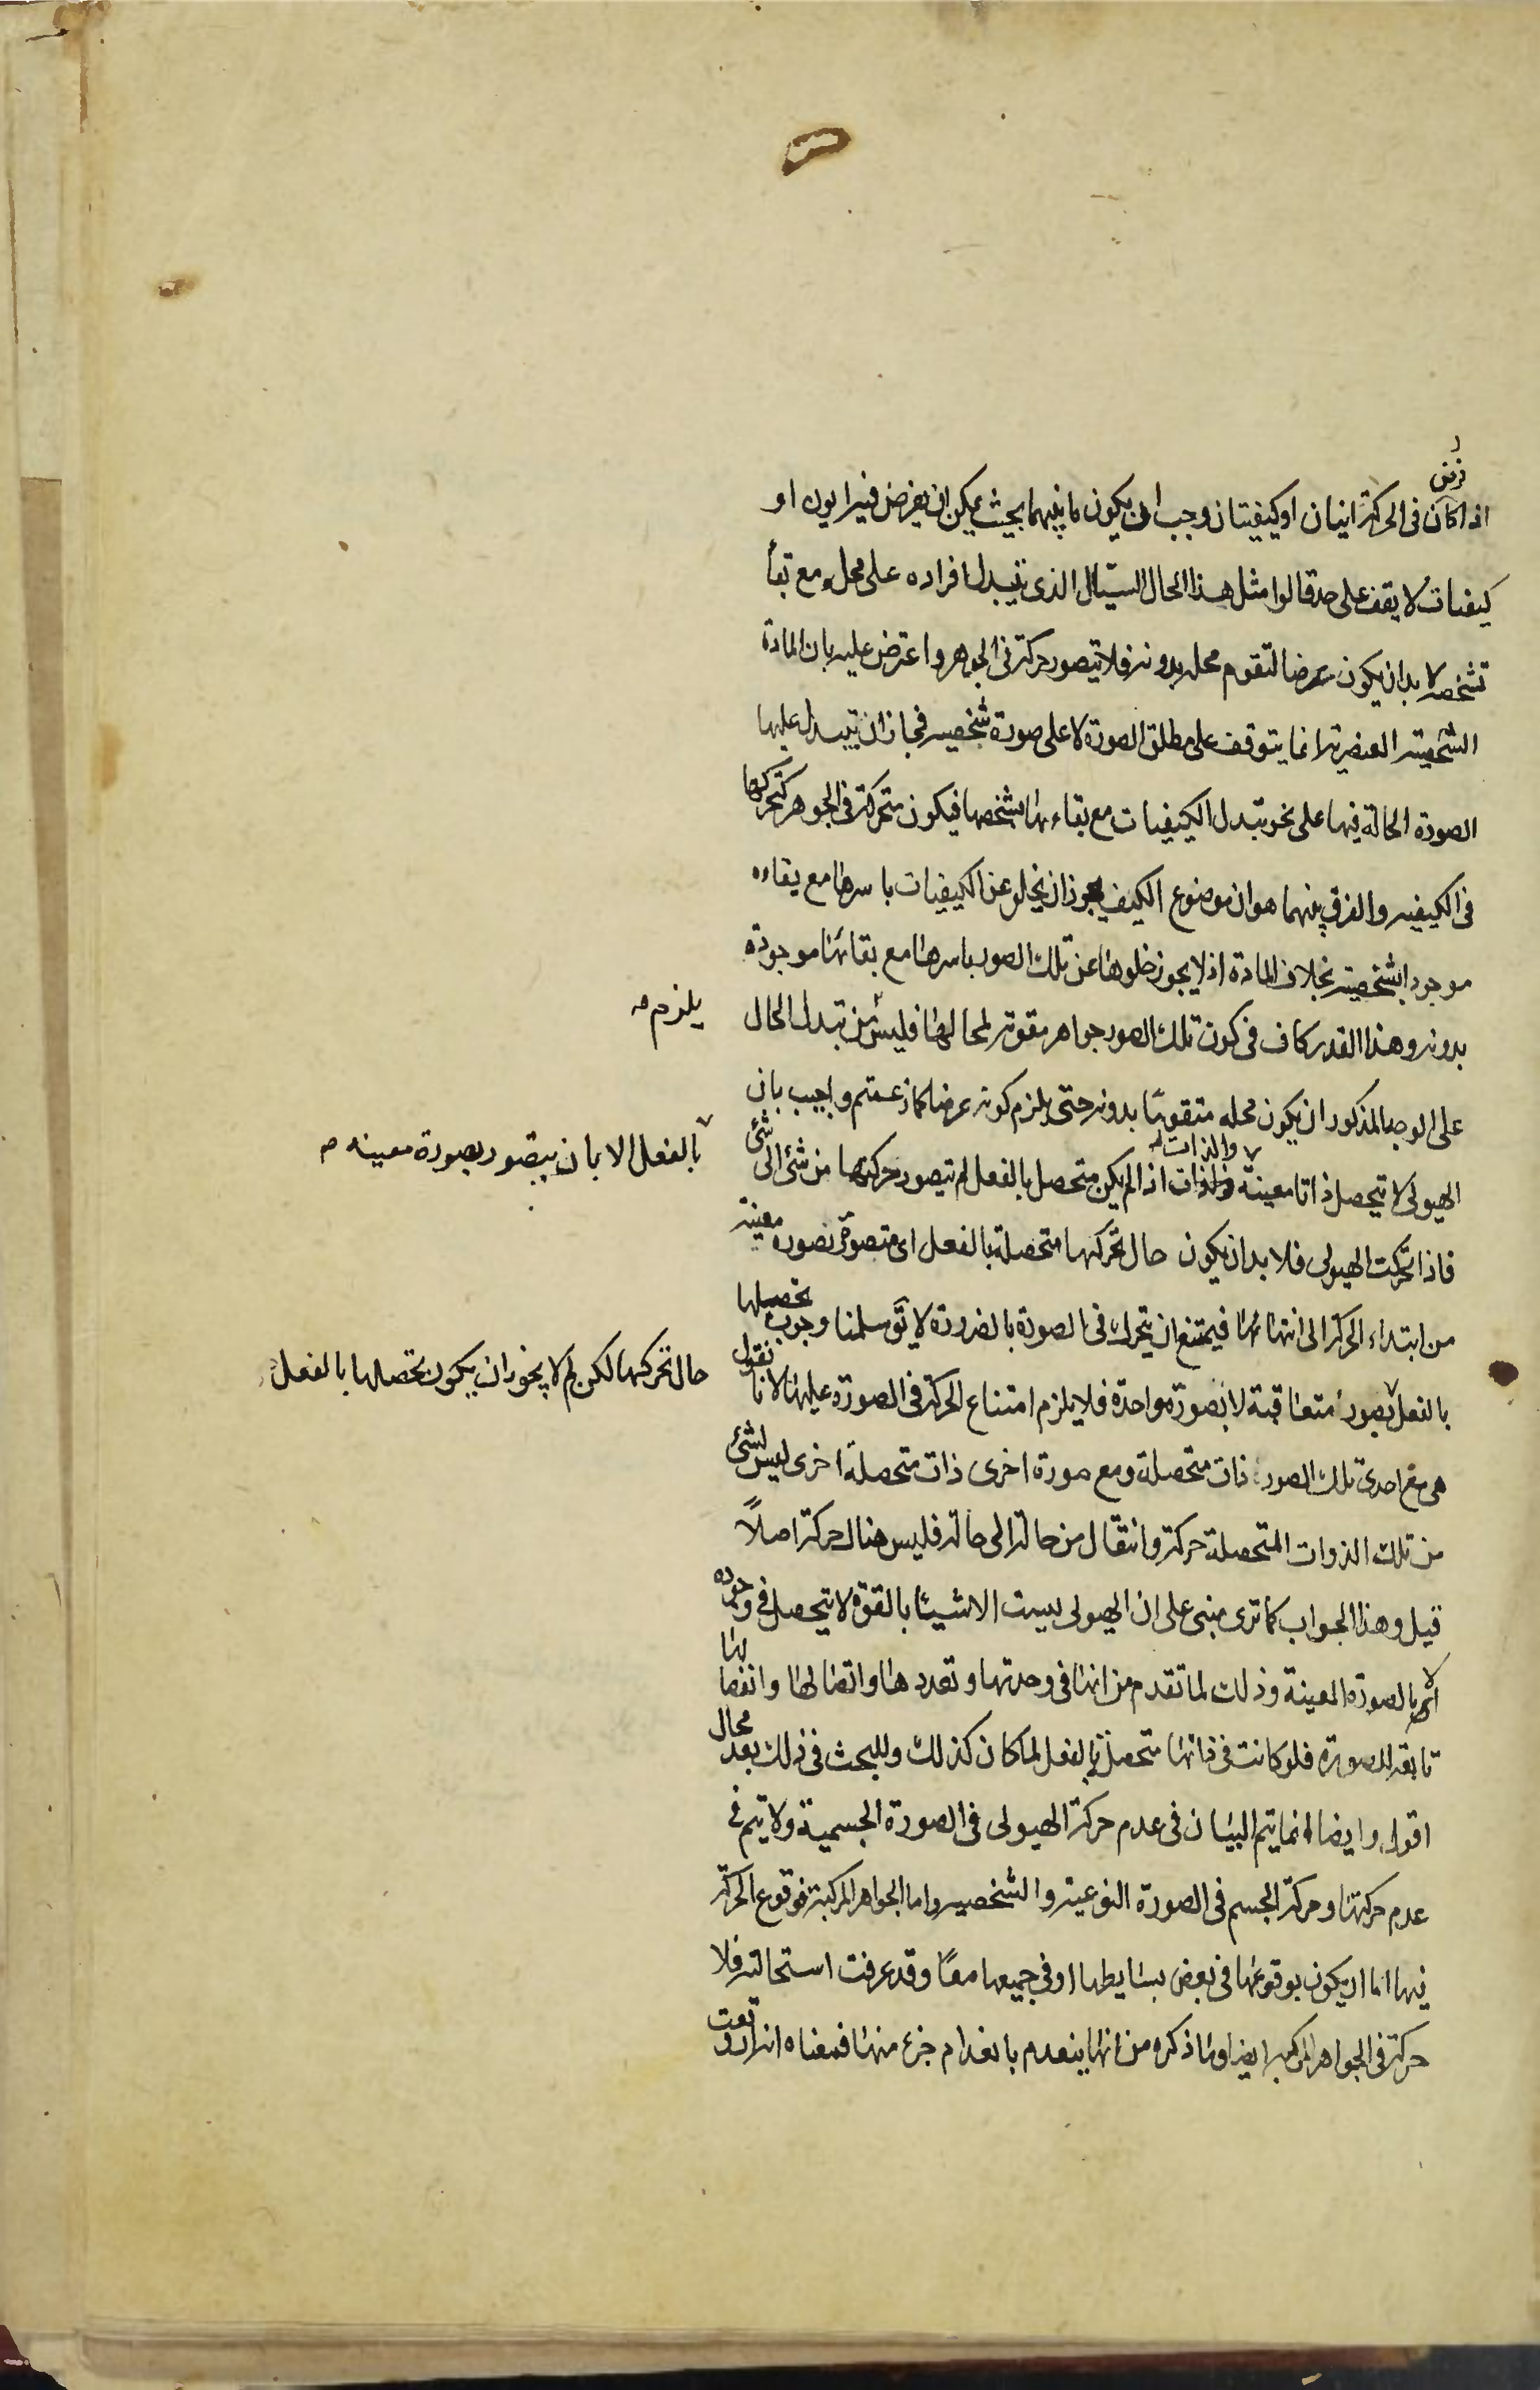 فرض
اذا كان فى الحركة اينان او كيفيتان وجب ان يكون ما بينهما بحيث يمكن ان يفرض فيه ايون او
كيفيات لا يقف على حد قالوا مثل هذا الحال السيال الذى تتبدل افراده على محله مع بقأ
تشخصه لا بد ان يكون عرضا لتقوم محله بدونه فلا يتصور حركة فى الجوهر واعترض عليه بان المادة
الشخصية العنصرية انما يتوقف على مطلق الصورة لا على صورة شخصيه فجاز ان يتبدل عليها
الصورة الحالة فيها على نحو تبدل الكيفيات مع بقاءها بشخصها فيكون متحركة فى الجوهر كتحركها
فى الكيفيه والفرق بينهما هو ان موضوع الكيف يجوز ان يخلو عن الكيفيات باسرها مع بقاءه
موجودا بشخصيته بخلاف المادة اذ لا يجوز خلوها عن تلك الصور باسرها مع بقائها موجودة
بدونه وهذا القدر كاف فى كون تلك الصور جواهر مقومة لمحالها فليس من تبدل الحال
يلزم صه
على الوجه المذكور ان يكون محله متقوما بدونه حتى يلزم كونه عرضا كما زعمتم واجيب بان
الهيولى لا يتحصل ذاتا معينة والذات اذا لم يكن متحصل بالفعل لم يتصور حركتها من شئ الى شئ
بالفعل الا بان يتصور بصورة معينه ص
فاذا تحركت الهيولى فلا بد ان يكون حال تحركها متحصلة بالفعل اى متصورة بصورة معينة
من ابتداء الحركة الى انتهائها فيمتنع ان يتحرك فى الصورة بالضرورة لا يق سلمنا وجوب تحصلها
حال تحركها لكن لم لا يجوز ان يكون تحصلها بالفعل
بالفعل بصور متعاقبة لا بصورة واحدة فلا يلزم امتناع الحركة فى الصورة عليها لانا نقول
هى مع احدى تلك الصور ذات متحصلة ومع صورة اخرى ذات متحصلة اخرى ليس لشئ
من تلك الذوات المتحصلة حركة وانتقال من حالة الى حالة فليس هناك حركة اصلاً
قيل وهذا الجواب كما ترى مبنى على ان الهيولى ليست الا شيئا بالقوة لا يتحصل فى وجوده
الا بالصورة المعينة وذلك لما تقدم من انها فى وحدتها وتعددها واتصالها وانفصالها
تابعة للصورة فلو كانت فى ذاتها متحصلة بالفعل لما كان كذلك وللبحث فى ذلك بعد مجال
اقول وايضا انما يتم البيان فى عدم حركة الهيولى فى الصورة الجسمية ولا يتم فى
عدم حركتها وحركة الجسم فى الصورة النوعية والشخصيه واما الجواهر المركبة فوقوع الحركة
فيها اما ان يكون بوقوعها فى بعض بسايطها او فى جميعها معا وقد عرفت استحالته فلا
حركة فى الجواهر المركبه ايضا وما ذكره من انها ينعدم بانعدام جزء منها فمعناه انه لو وقعت